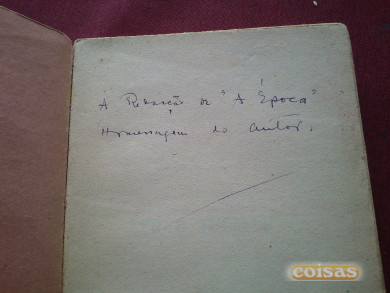 À Redacção de "A Época"
Homenagem do autor.
coisas